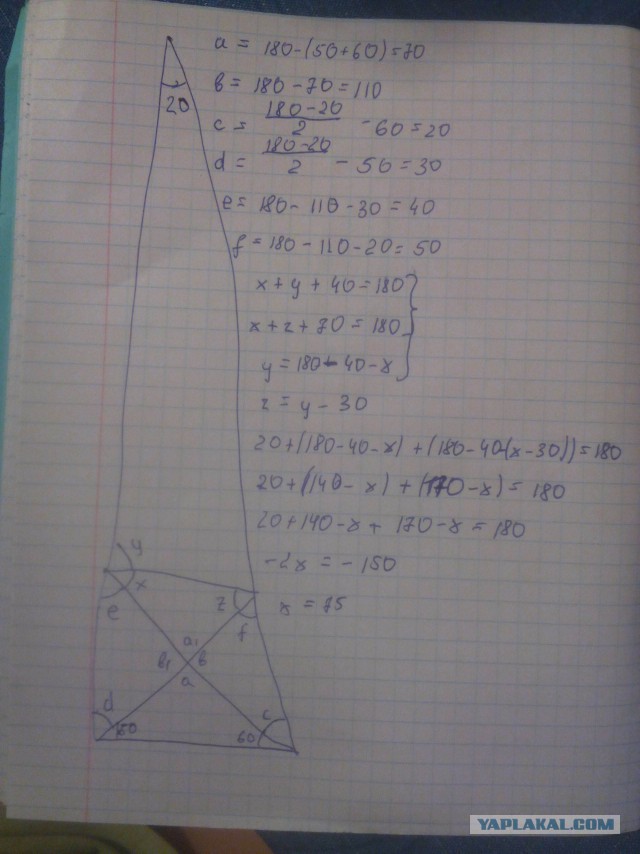 a = 180-(50+60)=70
b = 180-70=110
c = (180-20)/2 - 60=20
d = (180-20)/2 - 50=30
e = 180-110-30=40
f = 180-110-20=50
x+y+40=180
x+z+70=180
y=180-40-x
z=y-30
20+(180-40-x)+(180-40(x-30))=180
20+(140-x)+(170-x)=180
20+140-x+170-x=180
-2x=-150
x=75
20
y
x
e
z
f
a₁
b₁
b
a
d
50
c
60
YAPLAKAL.COM